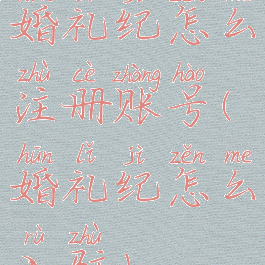 婚礼纪怎么
zhù cè zhàng hào
注册账号(
hūn lǐ jì zěn me
婚礼纪怎么
rù zhù